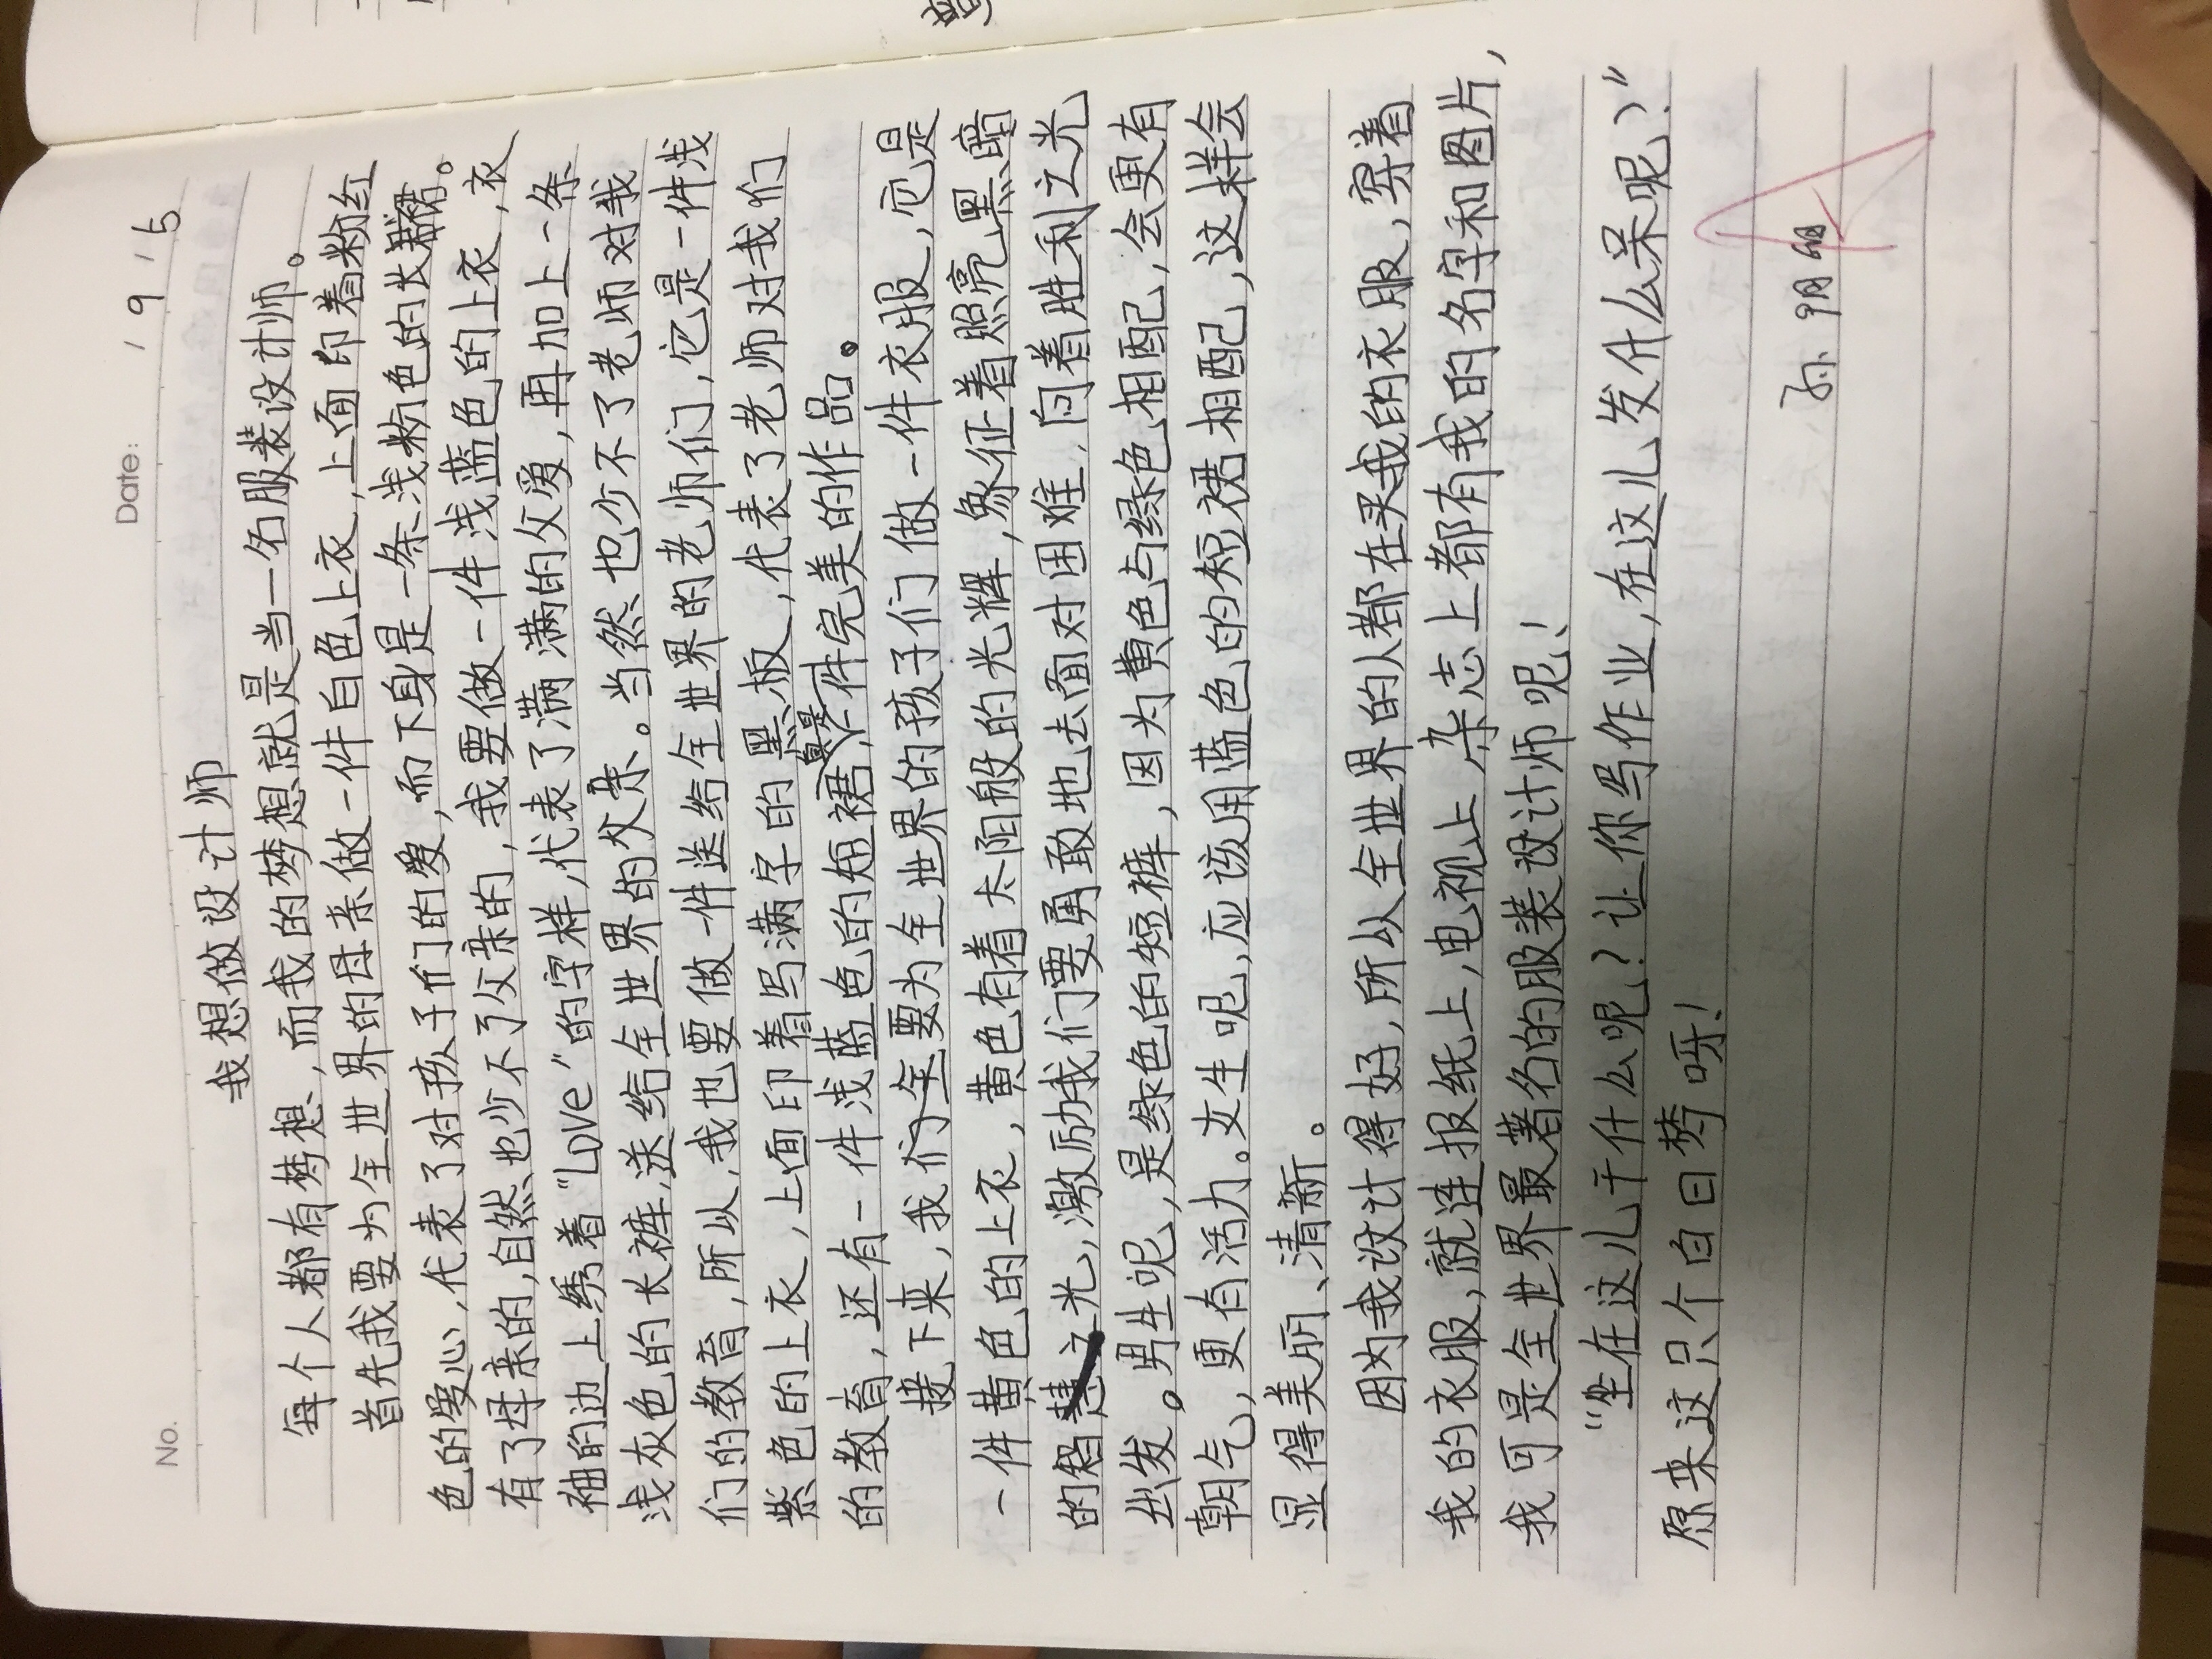 No.
Date: / 9 / 5
我想做设计师
每个人都有梦想，而我的梦想就是当一名服装设计师。
首先我要为全世界的母亲做一件白色上衣，上面印着粉红
色的爱心，代表了对孩子们的爱，而下身是一条浅粉色的长裙。
有了母亲的，自然也少不了父亲的，我要做一件浅蓝色的上衣，衣
袖的边上绣着“Love”的字样，代表了满满的父爱，再加上一条
浅灰色的长裤，送给全世界的父亲。当然也少不了老师对我
们的教育，所以，我也要做一件送给全世界的老师们，它是一件浅
紫色的上衣，上面印着写满字的黑板，代表了老师对我们
的教育，还有一件浅蓝色的短裙，真是一件完美的作品。
接下来，我们全要为全世界的孩子们做一件衣服，它是
一件黄色的上衣，黄色有着太阳般的光辉，象征着照亮黑暗
的智慧之光，激励我们要勇敢地去面对困难，向着胜利之光
出发。男生呢，是绿色的短裤，因为黄色与绿色相配，会更有
朝气，更有活力。女生呢，应该用蓝色的短裙相配，这样会
显得美丽、清新。
因为我设计得好，所以全世界的人都在买我的衣服，穿着
我的衣服，就连报纸上，电视上，杂志上都有我的名字和图片，
我可是全世界最著名的服装设计师呢！
“坐在这儿干什么呢？让你写作业，在这儿发什么呆呢？”
原来这只个白日梦呀！